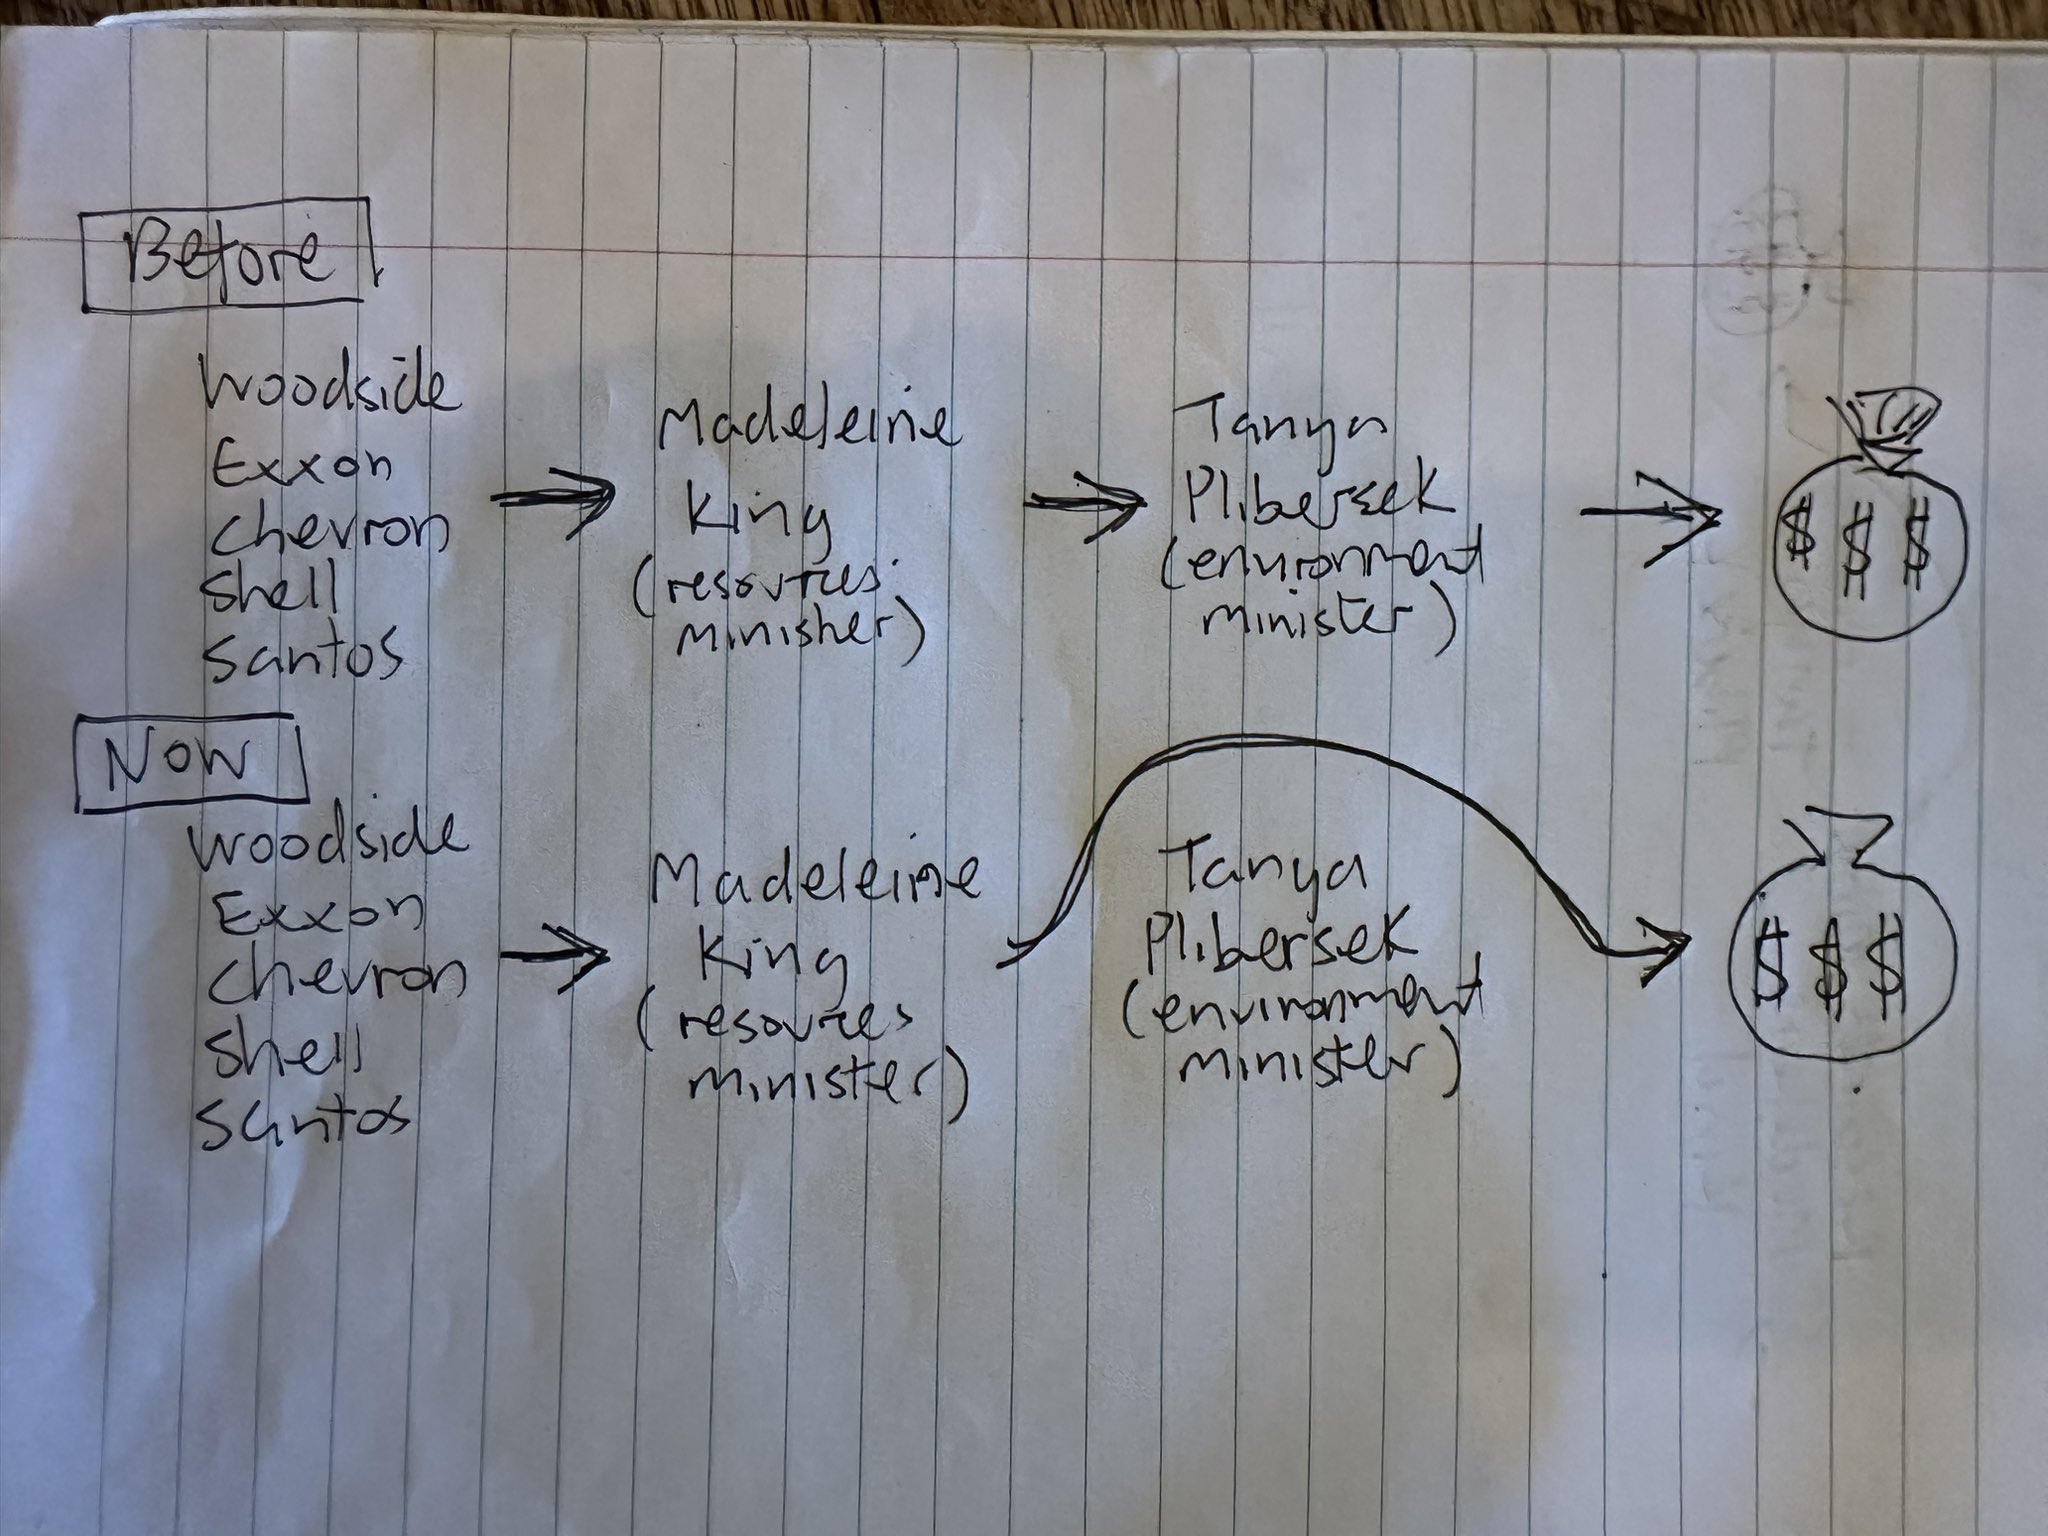 Before
Woodside
Exxon
Chevron
Shell
Santos
Madeleine
King
(resources
minister)
Tanya
Plibersek
(environment
minister)
$ $ $
Now
Woodside
Exxon
Chevron
Shell
Santos
Madeleine
King
(resources
minister)
Tanya
Plibersek
(environment
minister)
$ $ $